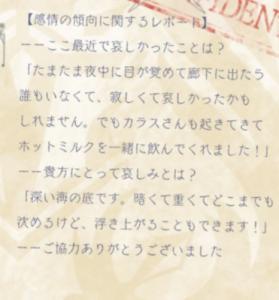 【感情の傾向に関するレポート】
――ここ最近で哀しかったことは？
「たまたま夜中に目が覚めて廊下に出たら
誰もいなくて、寂しくて哀しかったかも
しれません。でもカラスさんも起きてきて
ホットミルクを一緒に飲んでくれました！」
――貴方にとって哀しみとは？
「深い海の底です。暗くて重くてどこまでも
沈めるけど、浮き上がることもできます！」
――ご協力ありがとうございました